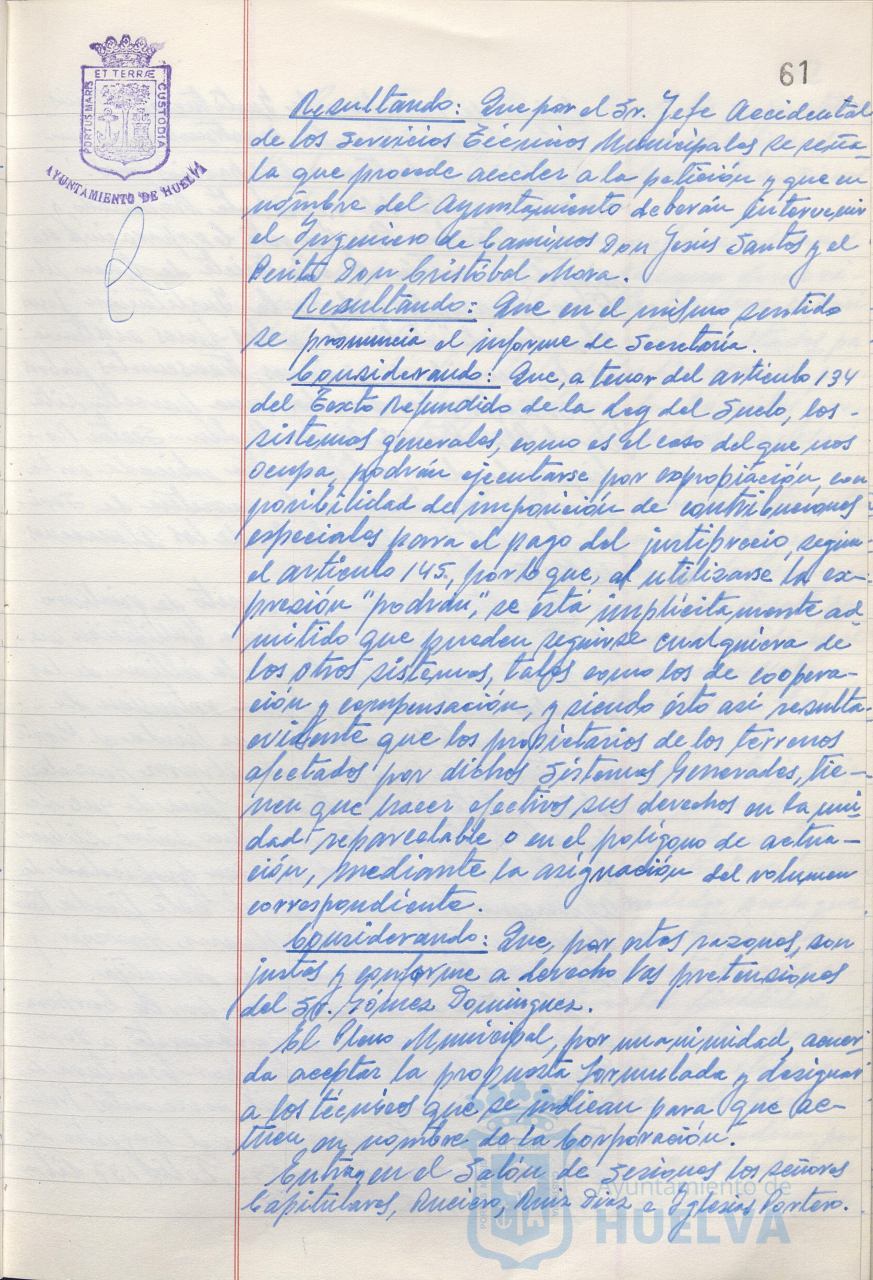 61
PORTUS MARIS ET TERRÆ CUSTODIA
AYUNTAMIENTO DE HUELVA
Resultando: Que por el Sr. Jefe Accidental
de los Servicios Técnicos Municipales se seña-
la que procede acceder a la petición y que en
nombre del Ayuntamiento deberán intervenir
el Ingeniero de Caminos Don Jesús Santos y el
Perito Don Cristóbal Mora.
Resultando: Que en el mismo sentido
se pronuncia el informe de Secretaría.
Considerando: Que, a tenor del artículo 134
del Texto Refundido de la Ley del Suelo, los
sistemas generales, como es el caso del que nos
ocupa, podrán ejecutarse por expropiación, con
posibilidad de imposición de contribuciones
especiales para el pago del justiprecio, según
el artículo 145, por lo que, al utilizarse la ex-
presión "podrán", se está implícitamente ad-
mitido que pueden seguirse cualquiera de
los otros sistemas, tales como los de coopera-
ción y compensación, y siendo ésto así resulta
evidente que los propietarios de los terrenos
afectados por dichos Sistemas Generales, tie-
nen que hacer efectivos sus derechos en la uni-
dad reparcelable o en el polígono de actua-
ción, mediante la asignación del volumen
correspondiente.
Considerando: Que, por estas razones, son
justas y conforme a derecho las pretensiones
del Sr. Gómez Domínguez.
El Pleno Municipal, por unanimidad, acuer-
da aceptar la propuesta formulada y designar
a los técnicos que se indican para que ac-
túen en nombre de la Corporación.
Entran en el Salón de Sesiones los señores
Capitulares, Anciero, Ruiz Díaz e Iglesias Portero.
Ayuntamiento de
HUELVA